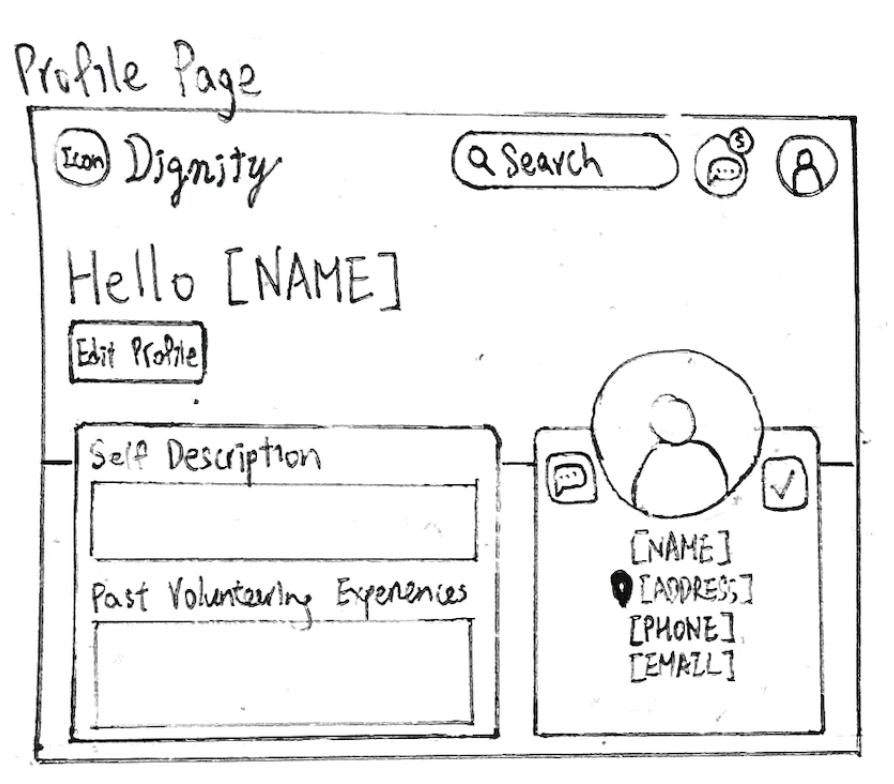 Profile Page
Icon Dignity
Search
3
Hello [NAME]
Edit Profile
Self Description
Past Volunteering Experiences
[NAME]
[ADDRESS]
[PHONE]
[EMAIL]